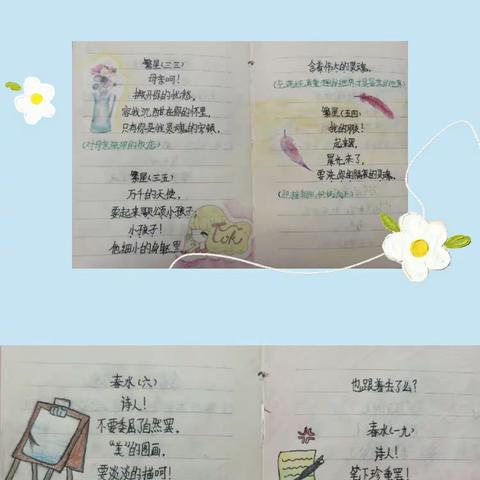 繁星(三三)
母亲呵!
撇开你的忧愁,
容我沉酣在你的怀里,
只有你是我灵魂的安顿。
繁星(三五)
万千的天使,
要起来歌颂小孩子;
小孩子!
他细小的身躯里,
含着伟大的灵魂。
繁星(五四)
我的朋友!
起来罢,
晨光来了,
要洗你的隔夜的灵魂。
春水(六)
诗人!
不要委屈了自然罢,
“美”的图画,
要淡淡的描呵!
也跟着去了么?
春水(一九)
诗人!
笔下珍重罢!